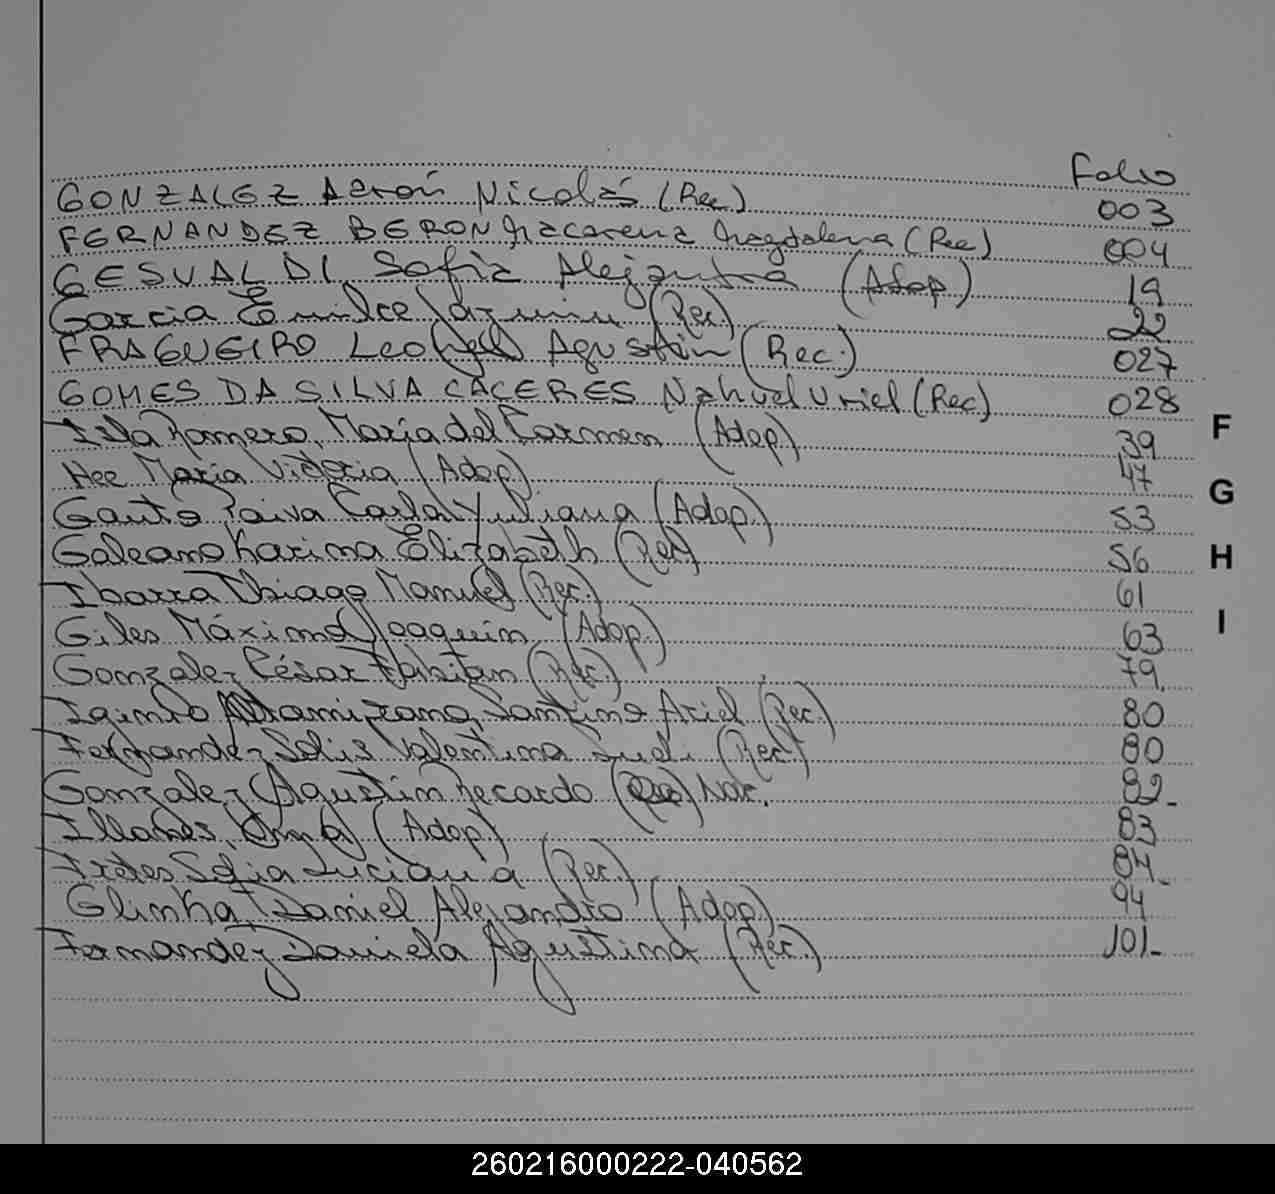 Folio
GONZALEZ Aarón Nicolás (Rec) 003
FERNANDEZ BERON Macarena Magdalena (Rec) 004
GESUALDI Sofia Alejandra (Adop) 19
Garcia Emilce (Rec) 22
FRAGUEIRO Leonel Agustín (Rec.) 027
GOMES DA SILVA CACERES Nahuel Uriel (Rec) 028
Isla Romero, Maria del Carmen (Adop) 39
Hee Maria Victoria (Adop) 47
Gauto Paiva Carla Yuliana (Adop.) 53
Galeano Karina Elizabeth (Rec) 56
Ibarra Thiago Manuel (Rec.) 61
Giles Máximo Joaquín (Adop.) 63
Gonzalez César Fabian (Rec.) 79
Altamirano, Santino Ariel (Rec.) 80
Fernandez Solis Valentina (Rec.) 80
Gonzalez Agustin Recardo Nac. 82-
Illanes, (Adop) 83
Fretes Sofia Luciana (Rec.) 84-
Glinka, Daniel Alejandro (Adop) 94
Fernandez Daniela Agustina (Rec.) 101-
F
G
H
I
260216000222-040562